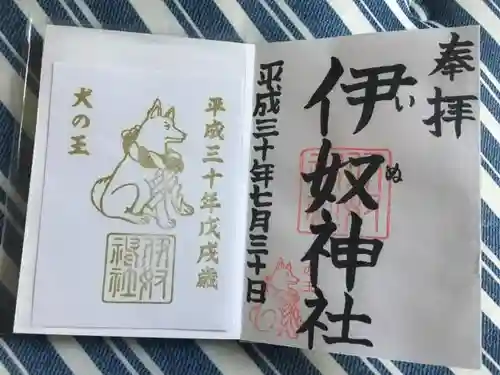 奉拝
伊奴神社
いぬ
平成三十年七月三十日
平成三十年戊戌歳
犬の王
伊奴神社